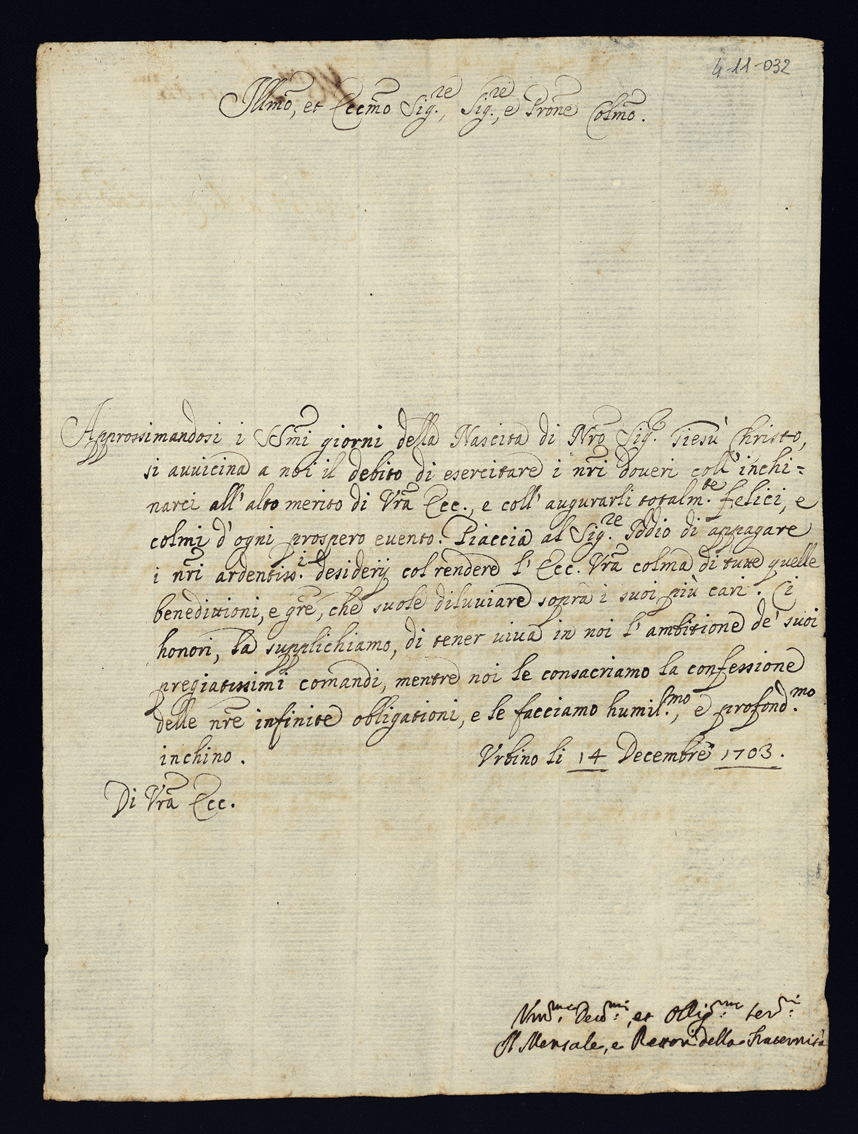 4-11-032
Illmo, et Eccmo Sig.re, Sig.re, e Prone Colmo.
Approssimandosi i SSmi giorni della Nascita di Nro Sig.re Giesù Christo,
si avvicina a noi il debito di esercitare i nri doveri coll' inchi=
narci all' alto merito di Vra Ecc., e coll' augurarli totalm.te felici, e
colmi d'ogni prospero evento. Piaccia al Sig.re Iddio di appagare
i nri ardentiss.i desiderij col rendere l' Ecc. Vra colma di tutte quelle
benedittioni, e gre, che suole diluviare sopra i suoi più cari. Ci
honori, la supplichiamo, di tener viva in noi l' ambitione de' suoi
pregiatissimi comandi, mentre noi le consacriamo la confessione
delle nre infinite obligationi, e le facciamo humil.mo, e profond.mo
inchino. Urbino li 14 Decembre 1703.
Di Vra Ecc.
Um.mi Dev.mi, et Oblig.mi Ser.i
Il Mensale, e Rettori della Fraternità